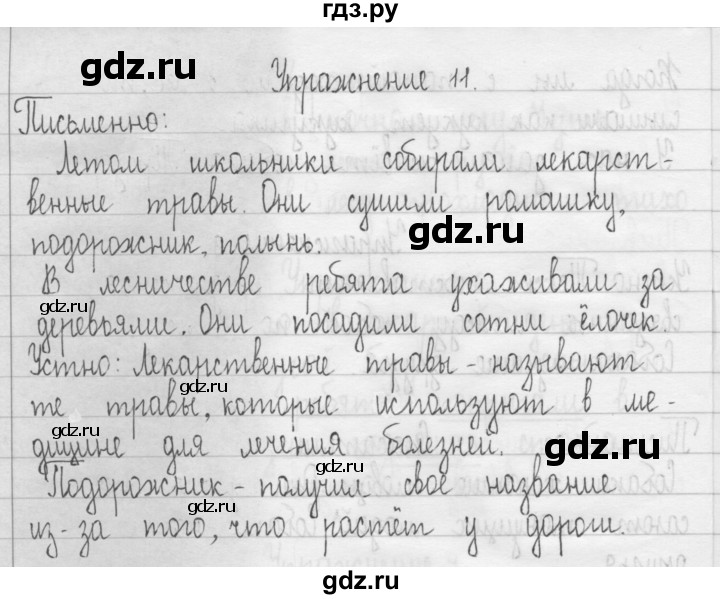 гдз.ру
gdz.ru
Упражнение 11.
Письменно:
Летом школьники собирали лекарст-
венные травы. Они сушили ромашку,
gdz.ru
подорожник, полынь.
В лесничестве ребята ухаживали за
gdz.ru
gdz.ru
деревьями. Они посадили сотни ёлочек
Устно: Лекарственные травы - называют
gdz.ru
те травы, которые используют в ме-
дицине для лечения болезней.
gdz.ru
gdz.ru
Подорожник - получил своё название
из-за того, что растёт у дорог.
gdz.ru
gdz.ru